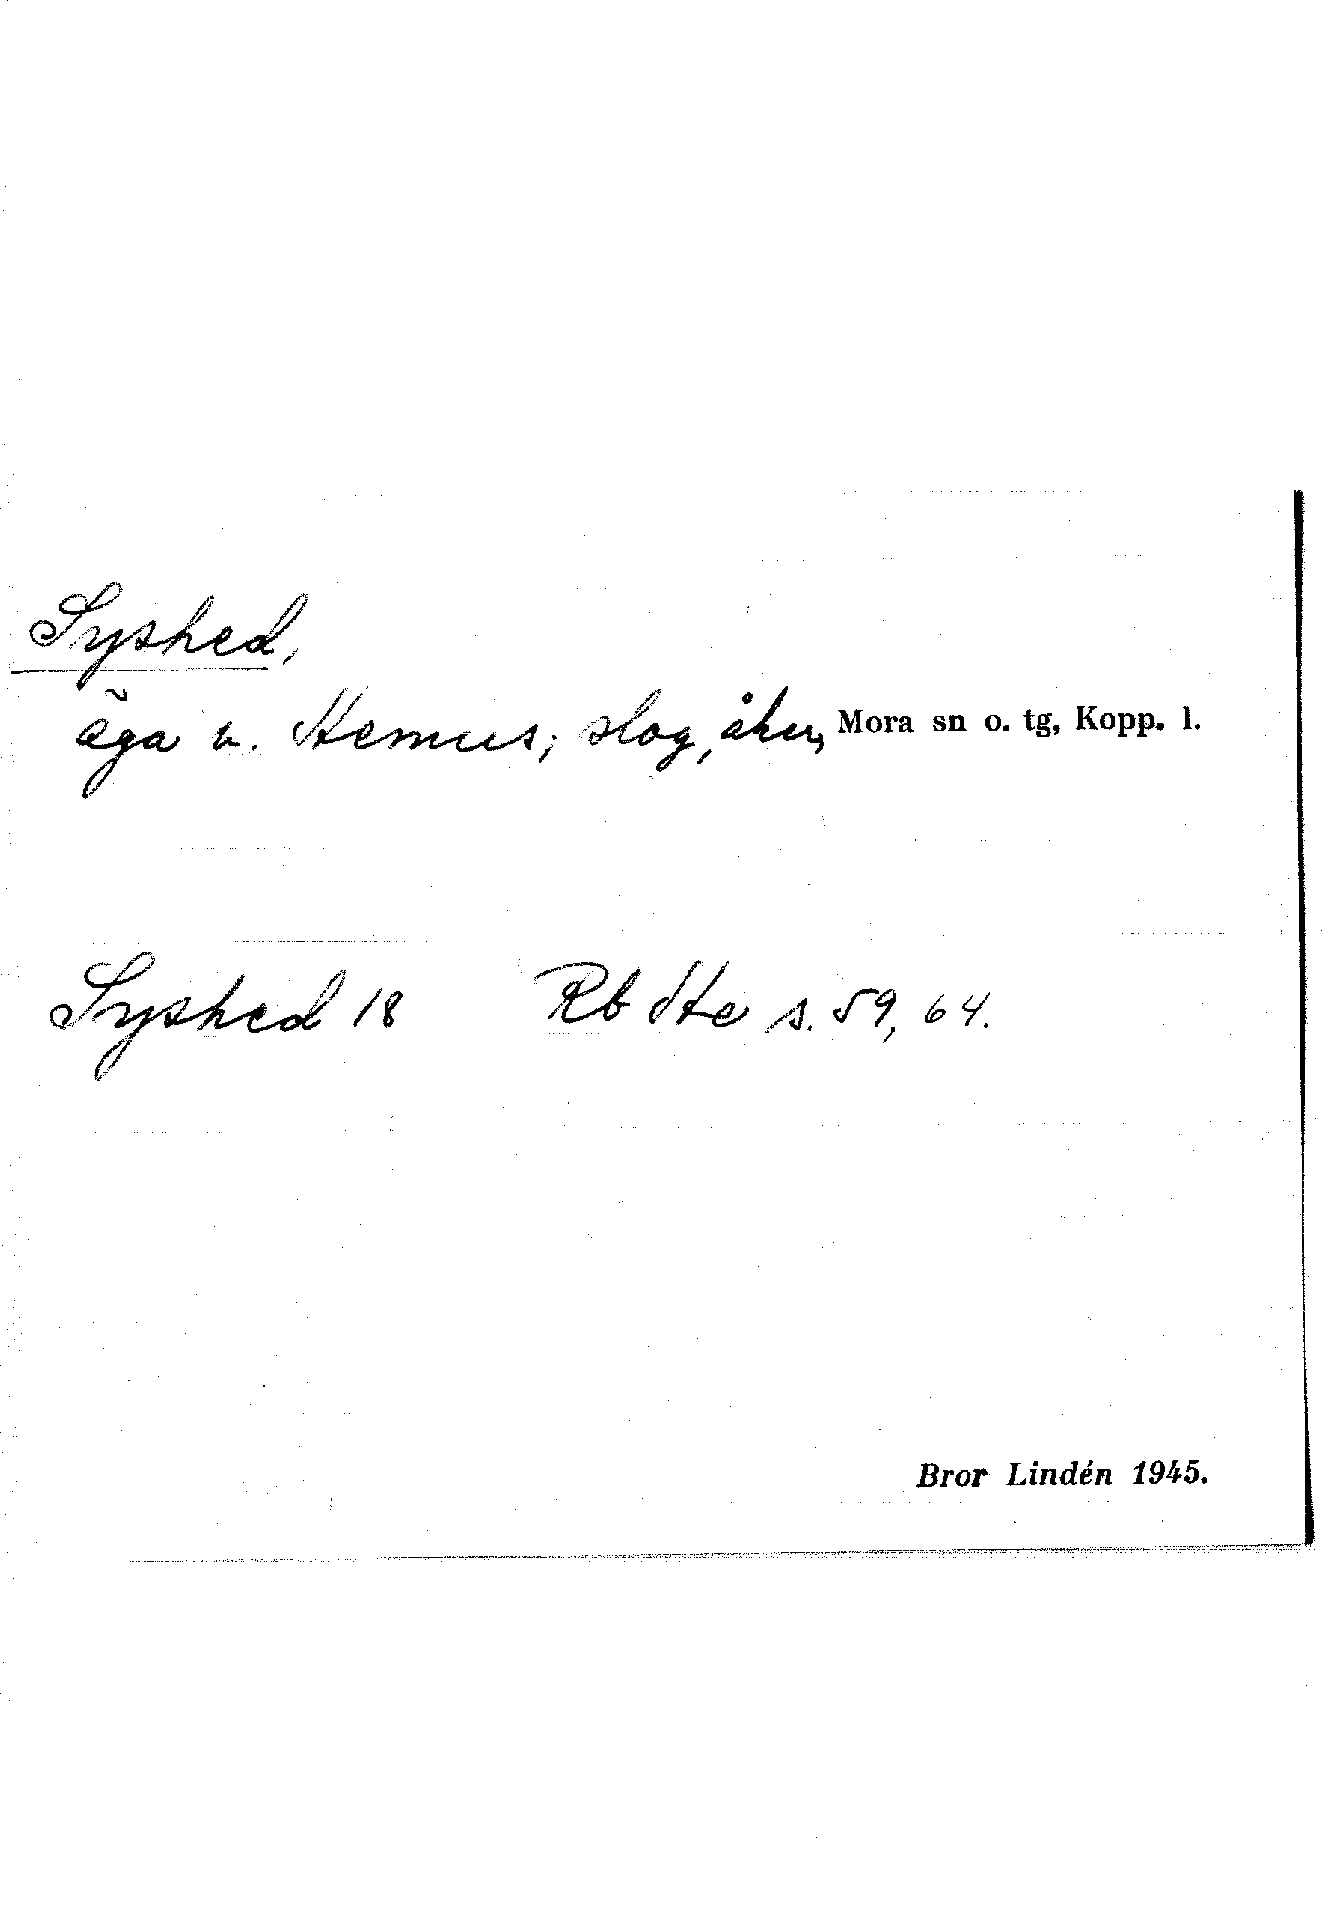 Syshed,
äga v. Hemus; slog, åker, Mora sn o. tg, Kopp. l.
Syshed 18 Rb Hte s. 59, 64.
Bror Lindén 1945.